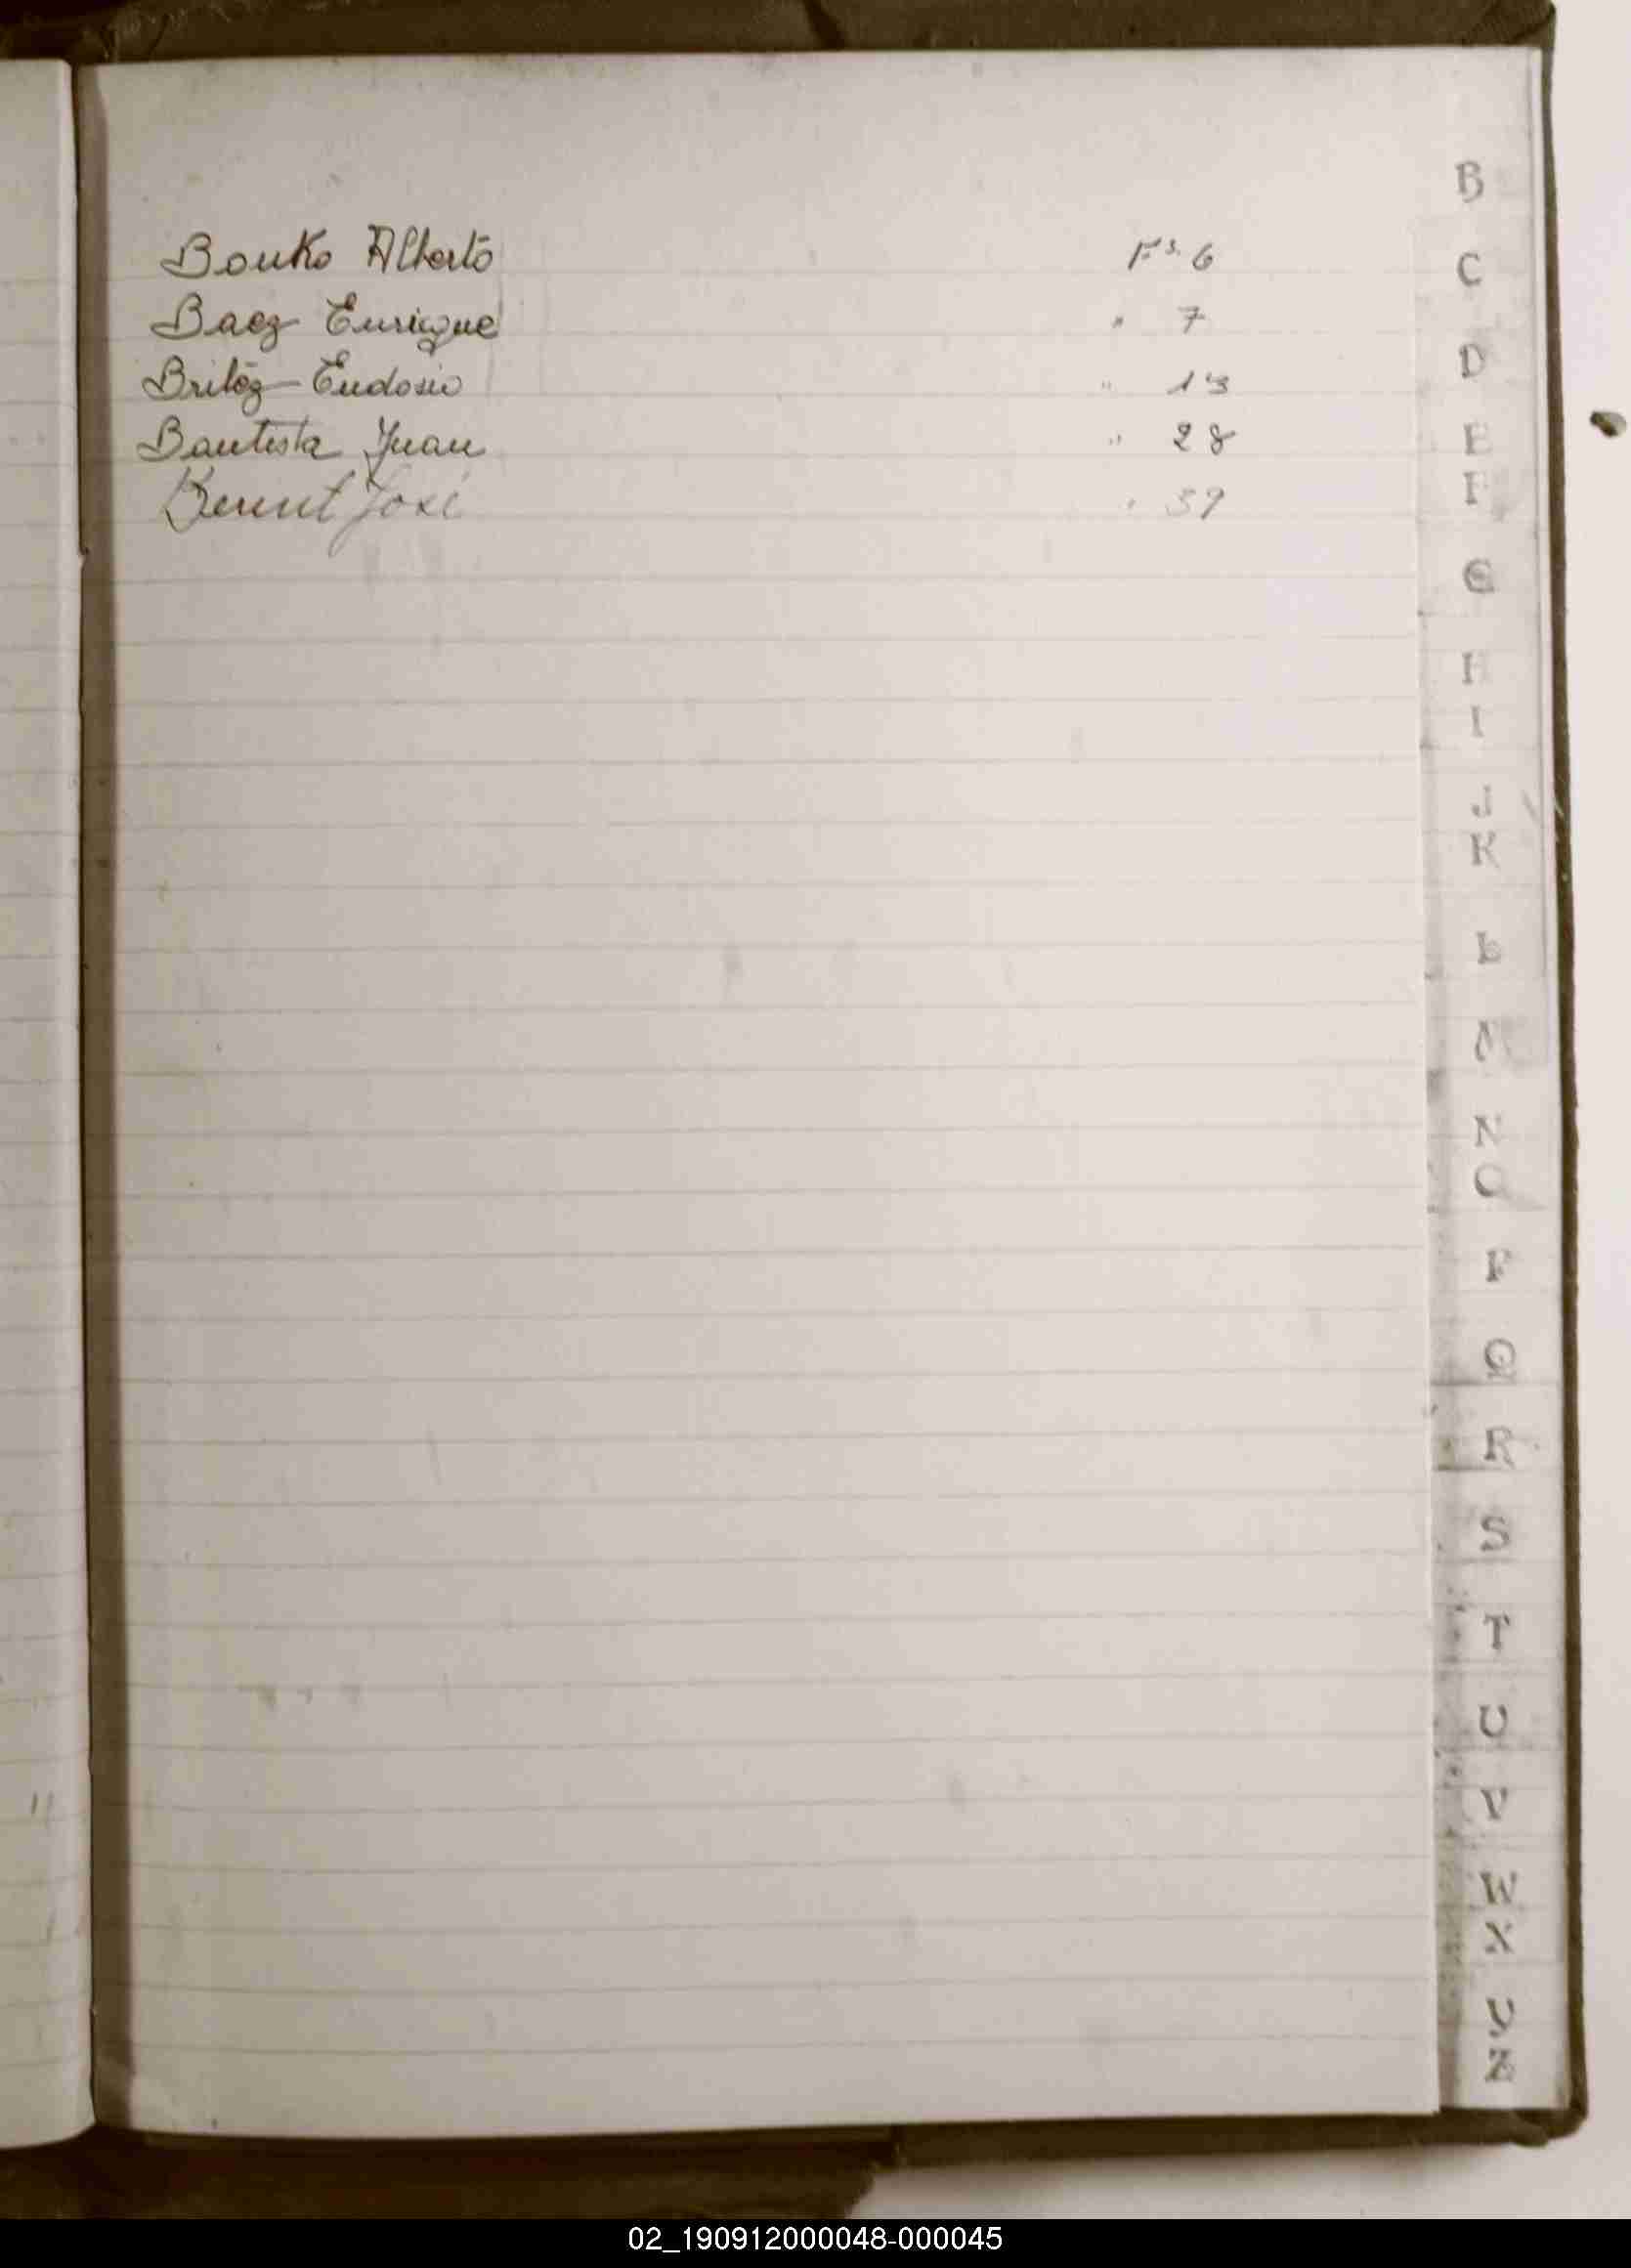 Bouko Alberto Fs. 6
Baez Enrique " 7
Britez Eudosio " 13
Bautista Juan " 28
José " 39
B
C
D
E
F
G
H
I
J
K
L
N
O
P
Q
R
S
T
U
V
W
X
Z
02_190912000048-000045